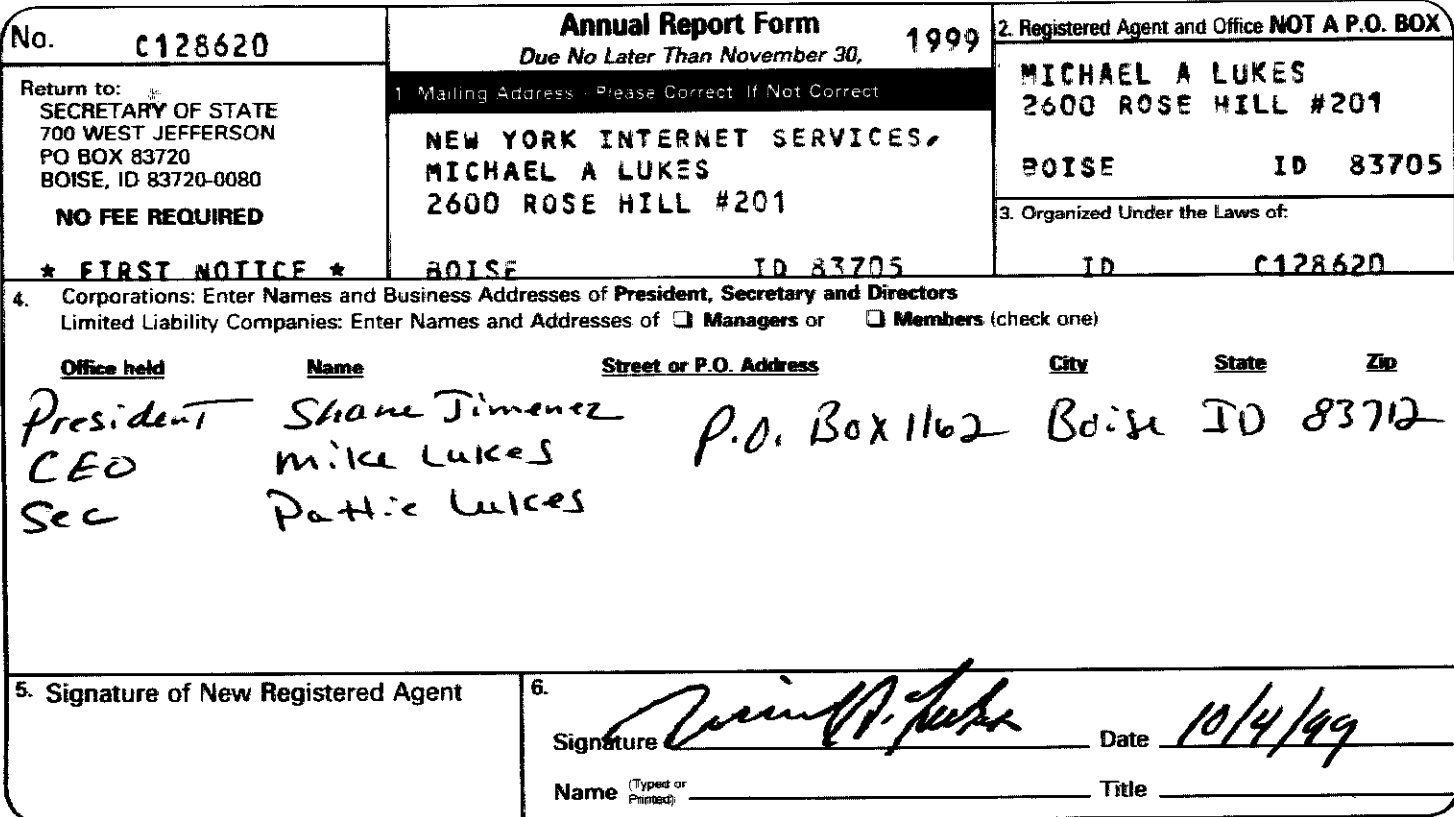 No. C128620
Return to:
SECRETARY OF STATE
700 WEST JEFFERSON
PO BOX 83720
BOISE, ID 83720-0080
NO FEE REQUIRED
* FIRST NOTICE *
Annual Report Form 1999
Due No Later Than November 30,
1 Mailing Address - Please Correct If Not Correct
NEW YORK INTERNET SERVICES,
MICHAEL A LUKES
2600 ROSE HILL #201
BOISE ID 83705
2. Registered Agent and Office NOT A P.O. BOX
MICHAEL A LUKES
2600 ROSE HILL #201
BOISE ID 83705
3. Organized Under the Laws of:
ID C128620
4. Corporations: Enter Names and Business Addresses of President, Secretary and Directors
Limited Liability Companies: Enter Names and Addresses of ❑ Managers or ❑ Members (check one)
Office held Name Street or P.O. Address City State Zip
President Shane Jimenez P.O. Box 1162 Boise ID 83712
CEO Mike Lukes
Sec Pattie Lukes
5. Signature of New Registered Agent
6.
Signature Date 10/4/99
Name (Typed or Printed) Title